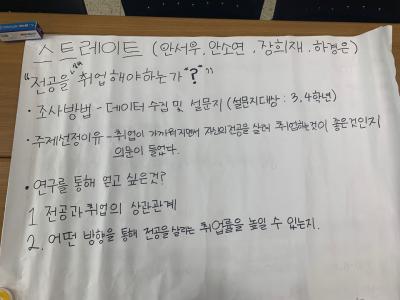 스트레이트 (안서우, 안소연, 장희재, 하경은)
"전공을 살려 취업해야하는가 "?""
· 조사방법 - 데이터 수집 및 설문지 (설문지대상 : 3,4학년)
· 주제선정이유 - 취업이 가까워지면서 자신의 전공을 살려 취업하는것이 좋은것인지
의문이 들었다.
• 연구를 통해 얻고 싶은것?
1 전공과 취업의 상관관계
2. 어떤 방향을 통해 전공을 살리는 취업률을 높일 수 있는지.